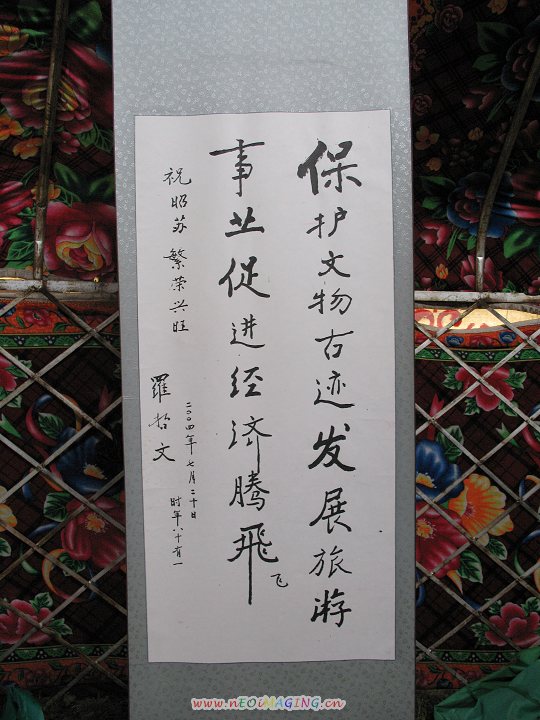 保护文物古迹发展旅游
事业促进经济腾飛
飞
祝昭苏繁荣兴旺
二〇〇四年七月二十日
时年八十有一
羅哲文
www.nEOiMAGING.cn